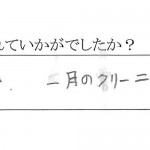 れていかがでしたか?
一月のクリーニ